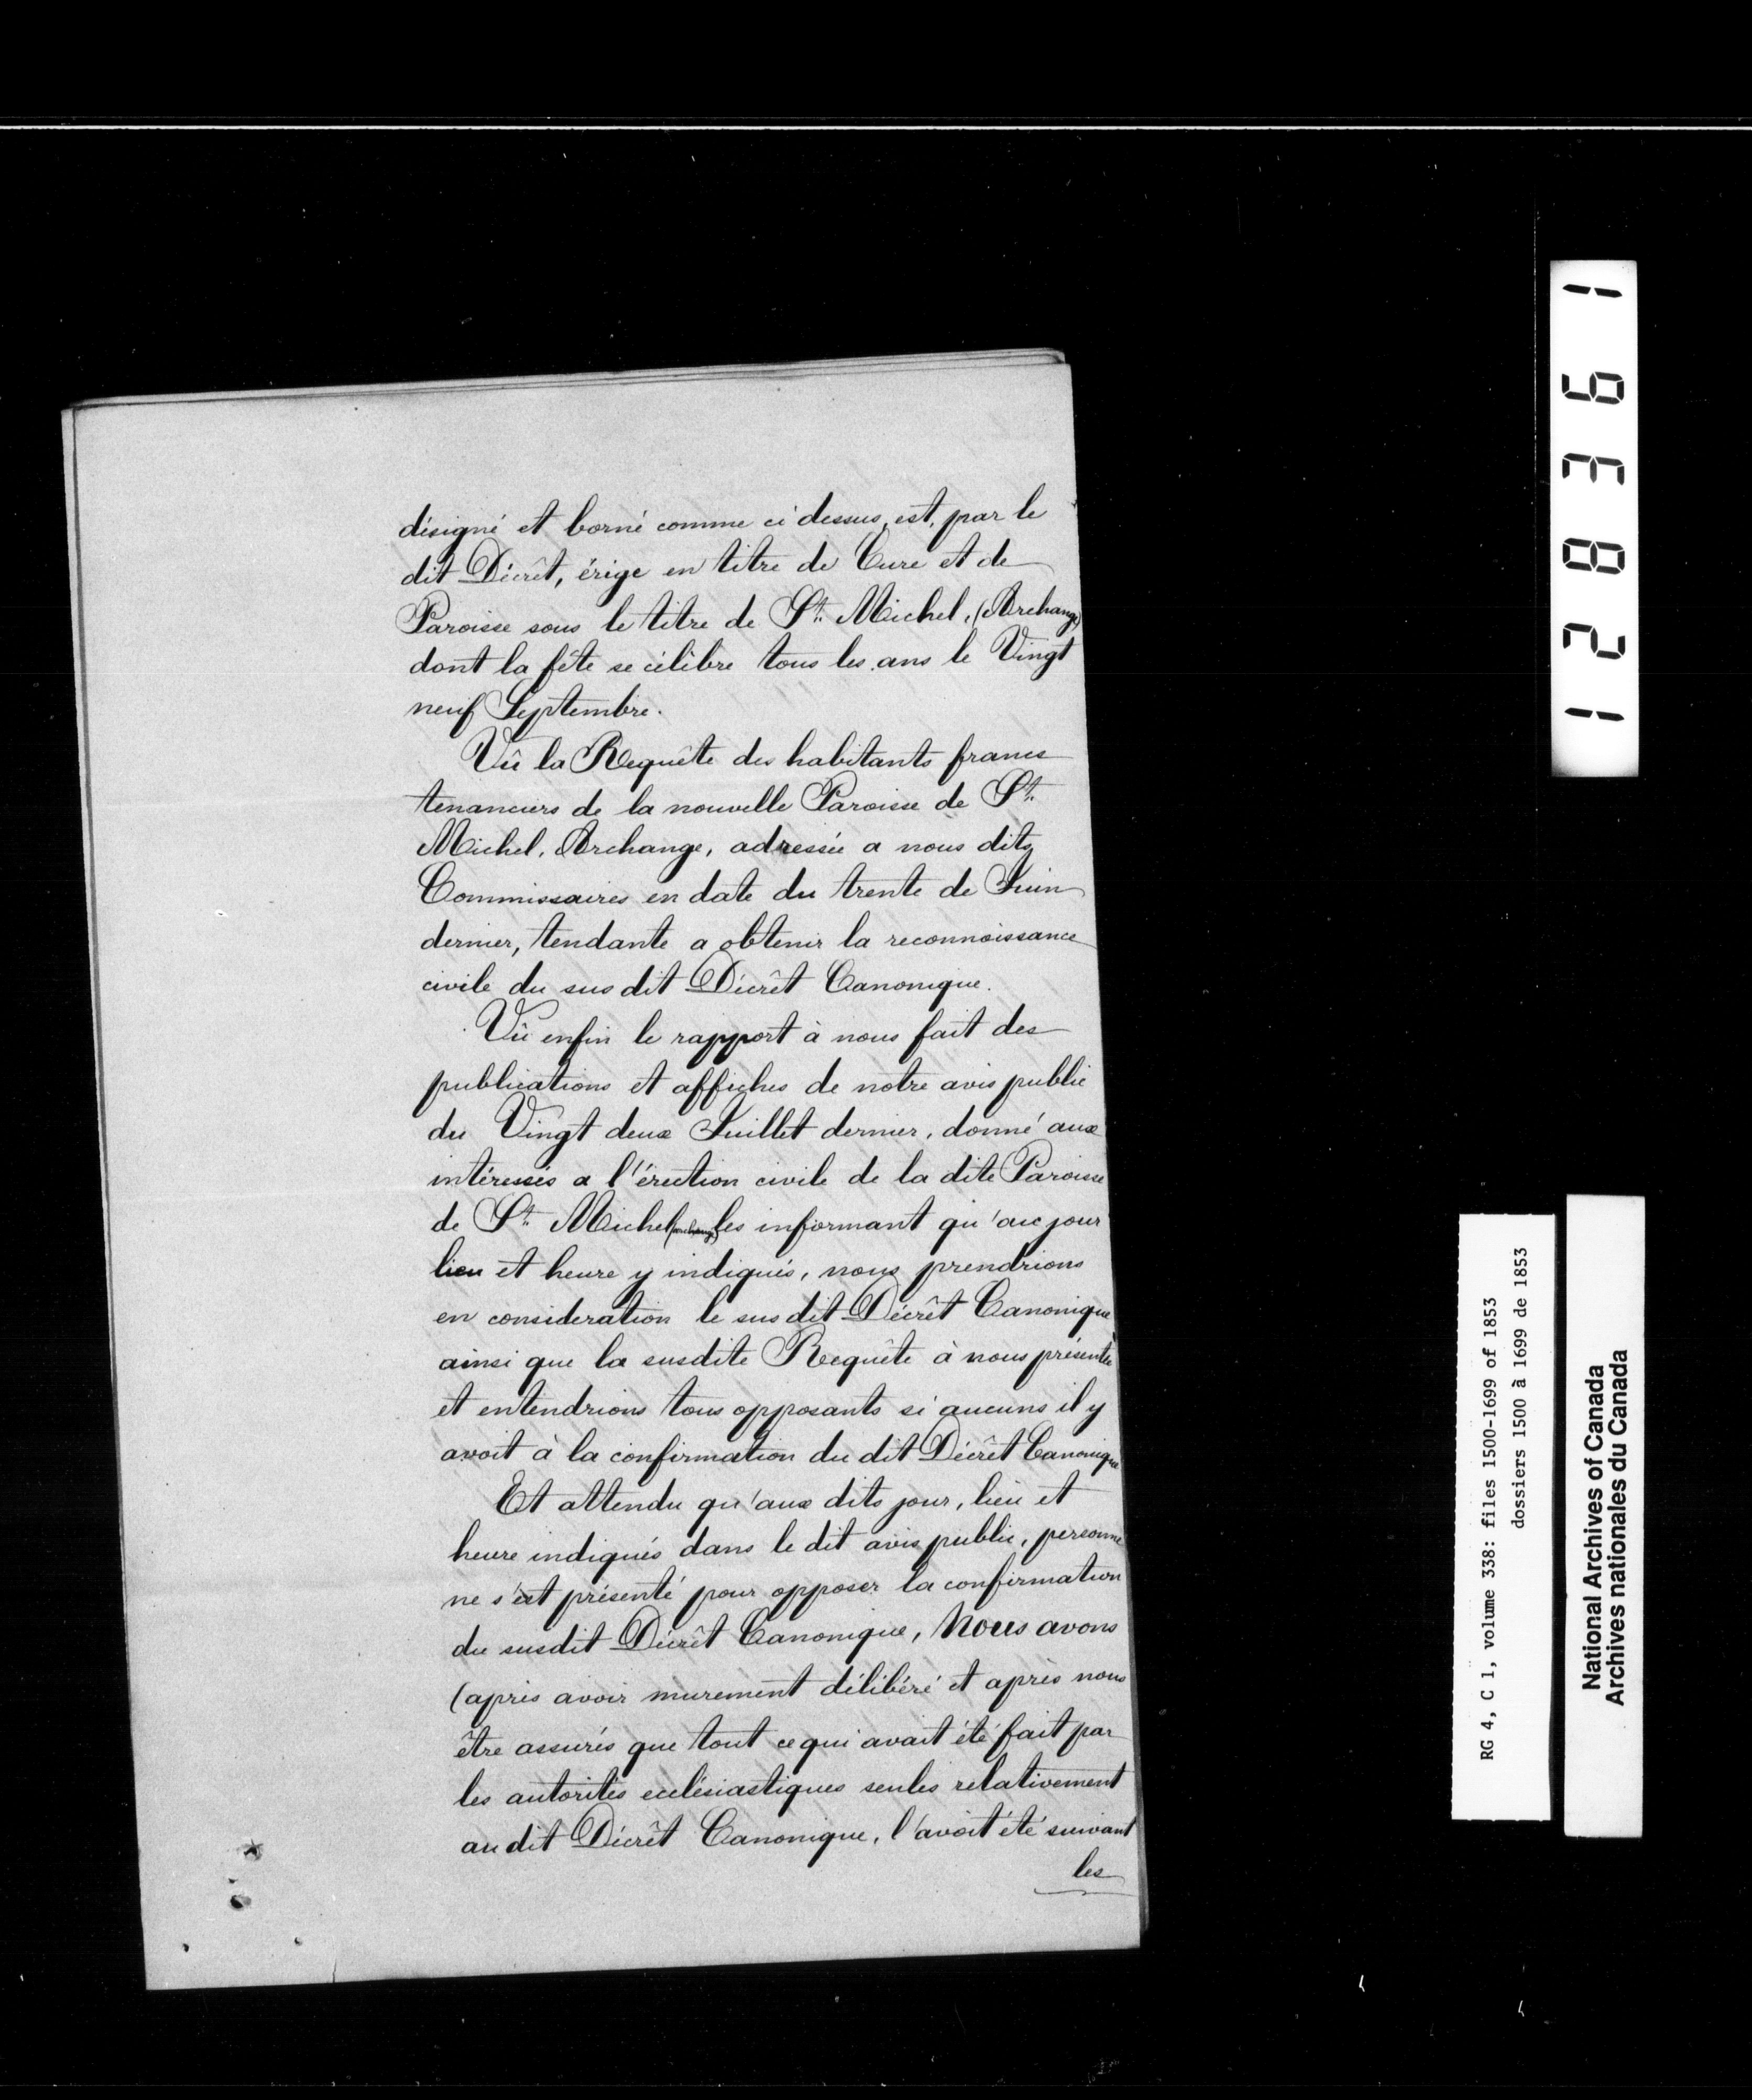 désigné et borné comme ci dessus, est, par le
dit Décrêt, érige en titre de Cure et de
Paroisse sous le titre de St. Michel, (Archange)
dont la fête se célèbre tous les ans le Vingt
neuf Septembre.
Vû la Requête des habitants francs
tenanciers de la nouvelle Paroisse de St.
Michel, Archange, adressée a nous dits
Commissaires en date du trente de Juin
dernier, tendante a obtenir la reconnoissance
civile du sus dit Décrêt Canonique.
Vû enfin le rapport à nous fait des
publications et affiches de notre avis public
du Vingt deux Juillet dernier, donné aux
intéressés a l'érection civile de la dite Paroisse
de St. Michel (archange) les informant qu'aux jour
lieu et heure y indiqués, nous prendrions
en consideration le sus dit Décrêt Canonique
ainsi que la susdite Requête à nous présentée
et entendrions tous opposants si aucuns il y
avoit à la confirmation du dit Décrêt Canonique
Et attendu qu'aux dits jour, lieu et
heure indiqués dans le dit avis public, personne
ne s'est présenté pour opposer la confirmation
du susdit Décrêt Canonique, Nous avons
(après avoir murement délibéré et après nous
être assurés que tout ce qui avait été fait par
les autorités ecclésiastiques seules relativement
au dit Décrêt Canonique, l'avoit été suivant
les
128361
RG 4, C 1, volume 338: files 1500-1699 of 1853
dossiers 1500 à 1699 de 1853
National Archives of Canada
Archives nationales du Canada